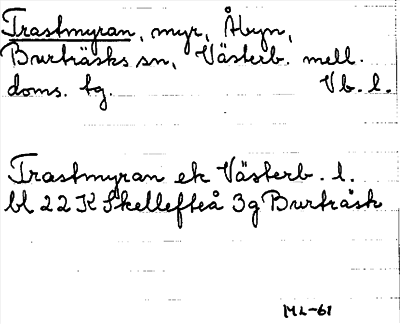 Trastmyran, myr, Åbyn,
Burträsks sn, Västerb. mell.
doms. tg. Vb. l.
Trastmyran ek Västerb. l.
bl 22 K Skellefteå 3g Burträsk
ML-61